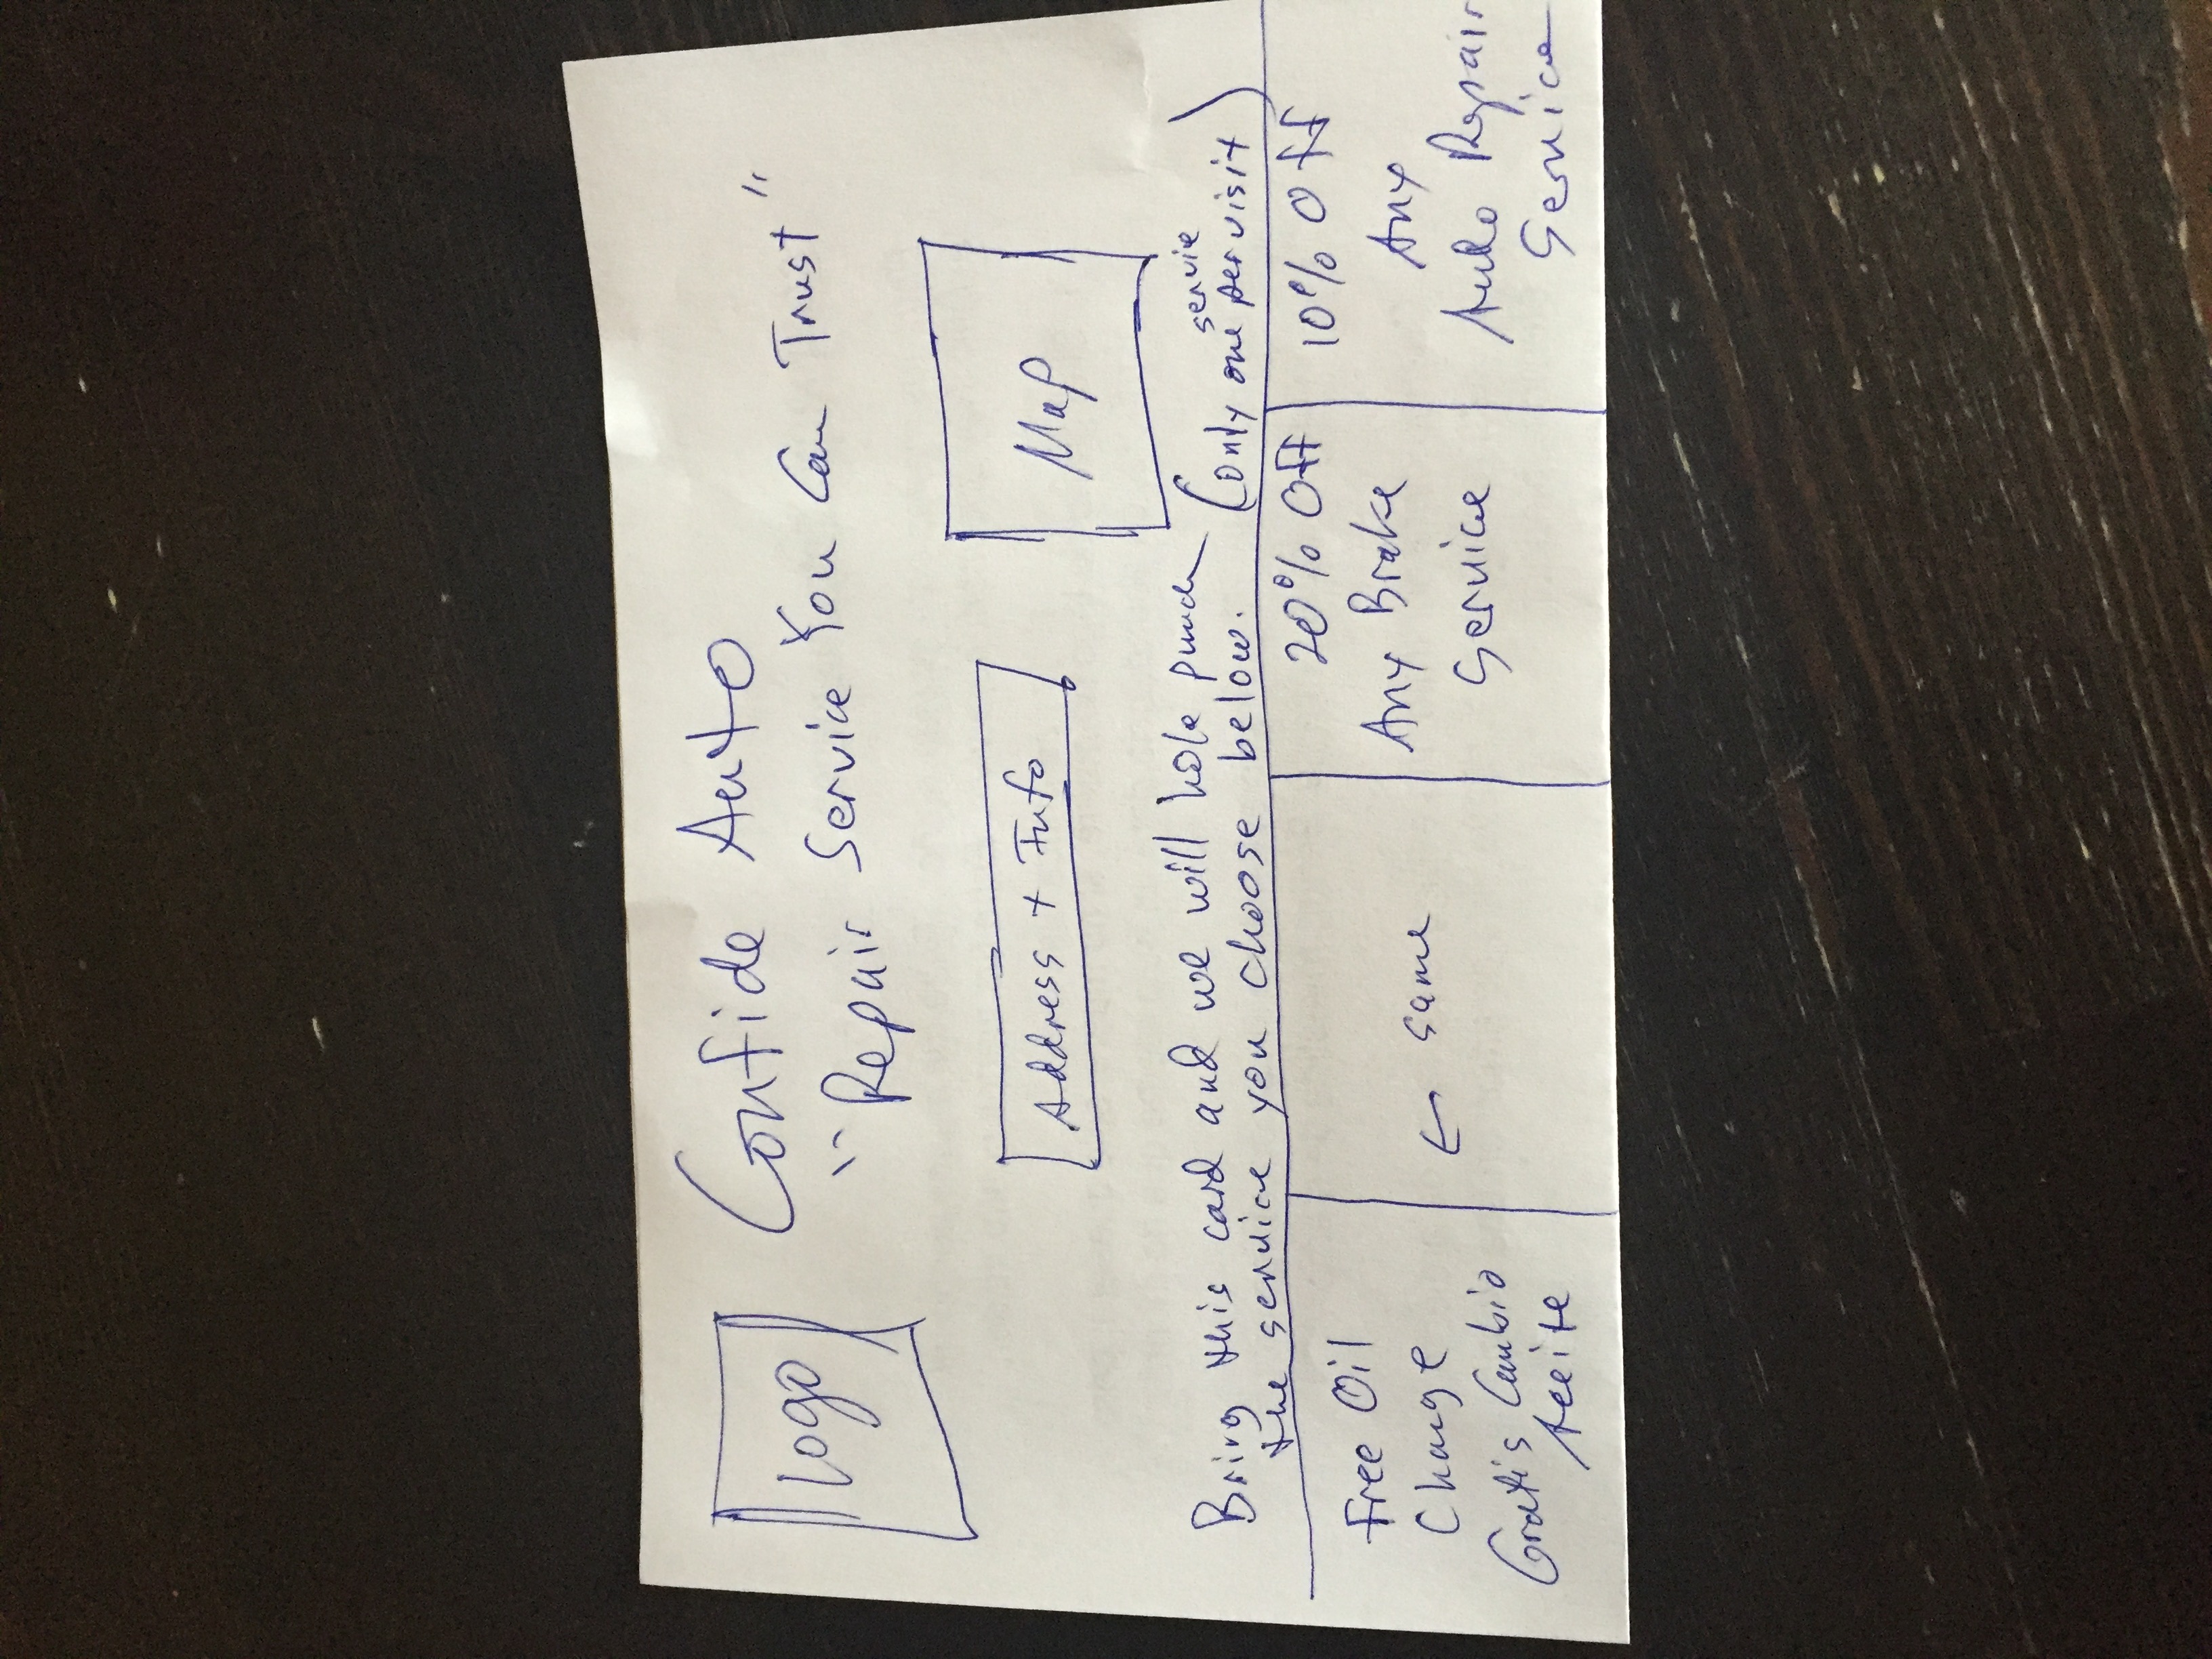 Logo
Confide Auto
"Repair Service You Can Trust"
Address + Info
Map
Bring this card and we will hole punch
the service you choose below.
(only one service per visit)
Free Oil
Change
Gratis Cambio
Aceite
← same
20% Off
Any Brake
Service
10% Off
Any
Auto Repair
Service